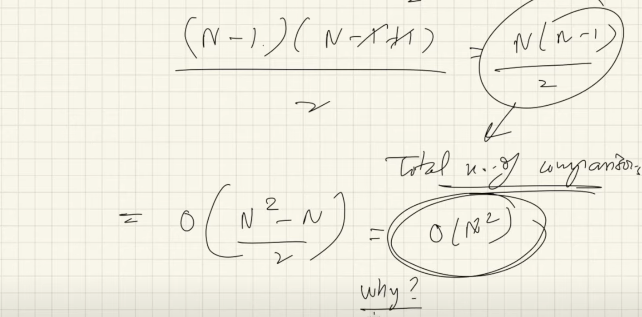 (N-1)(N-1+1) / 2 = N(N-1) / 2
Total no. of comparisons
= O(N²-N / 2) = O(N²)
why?